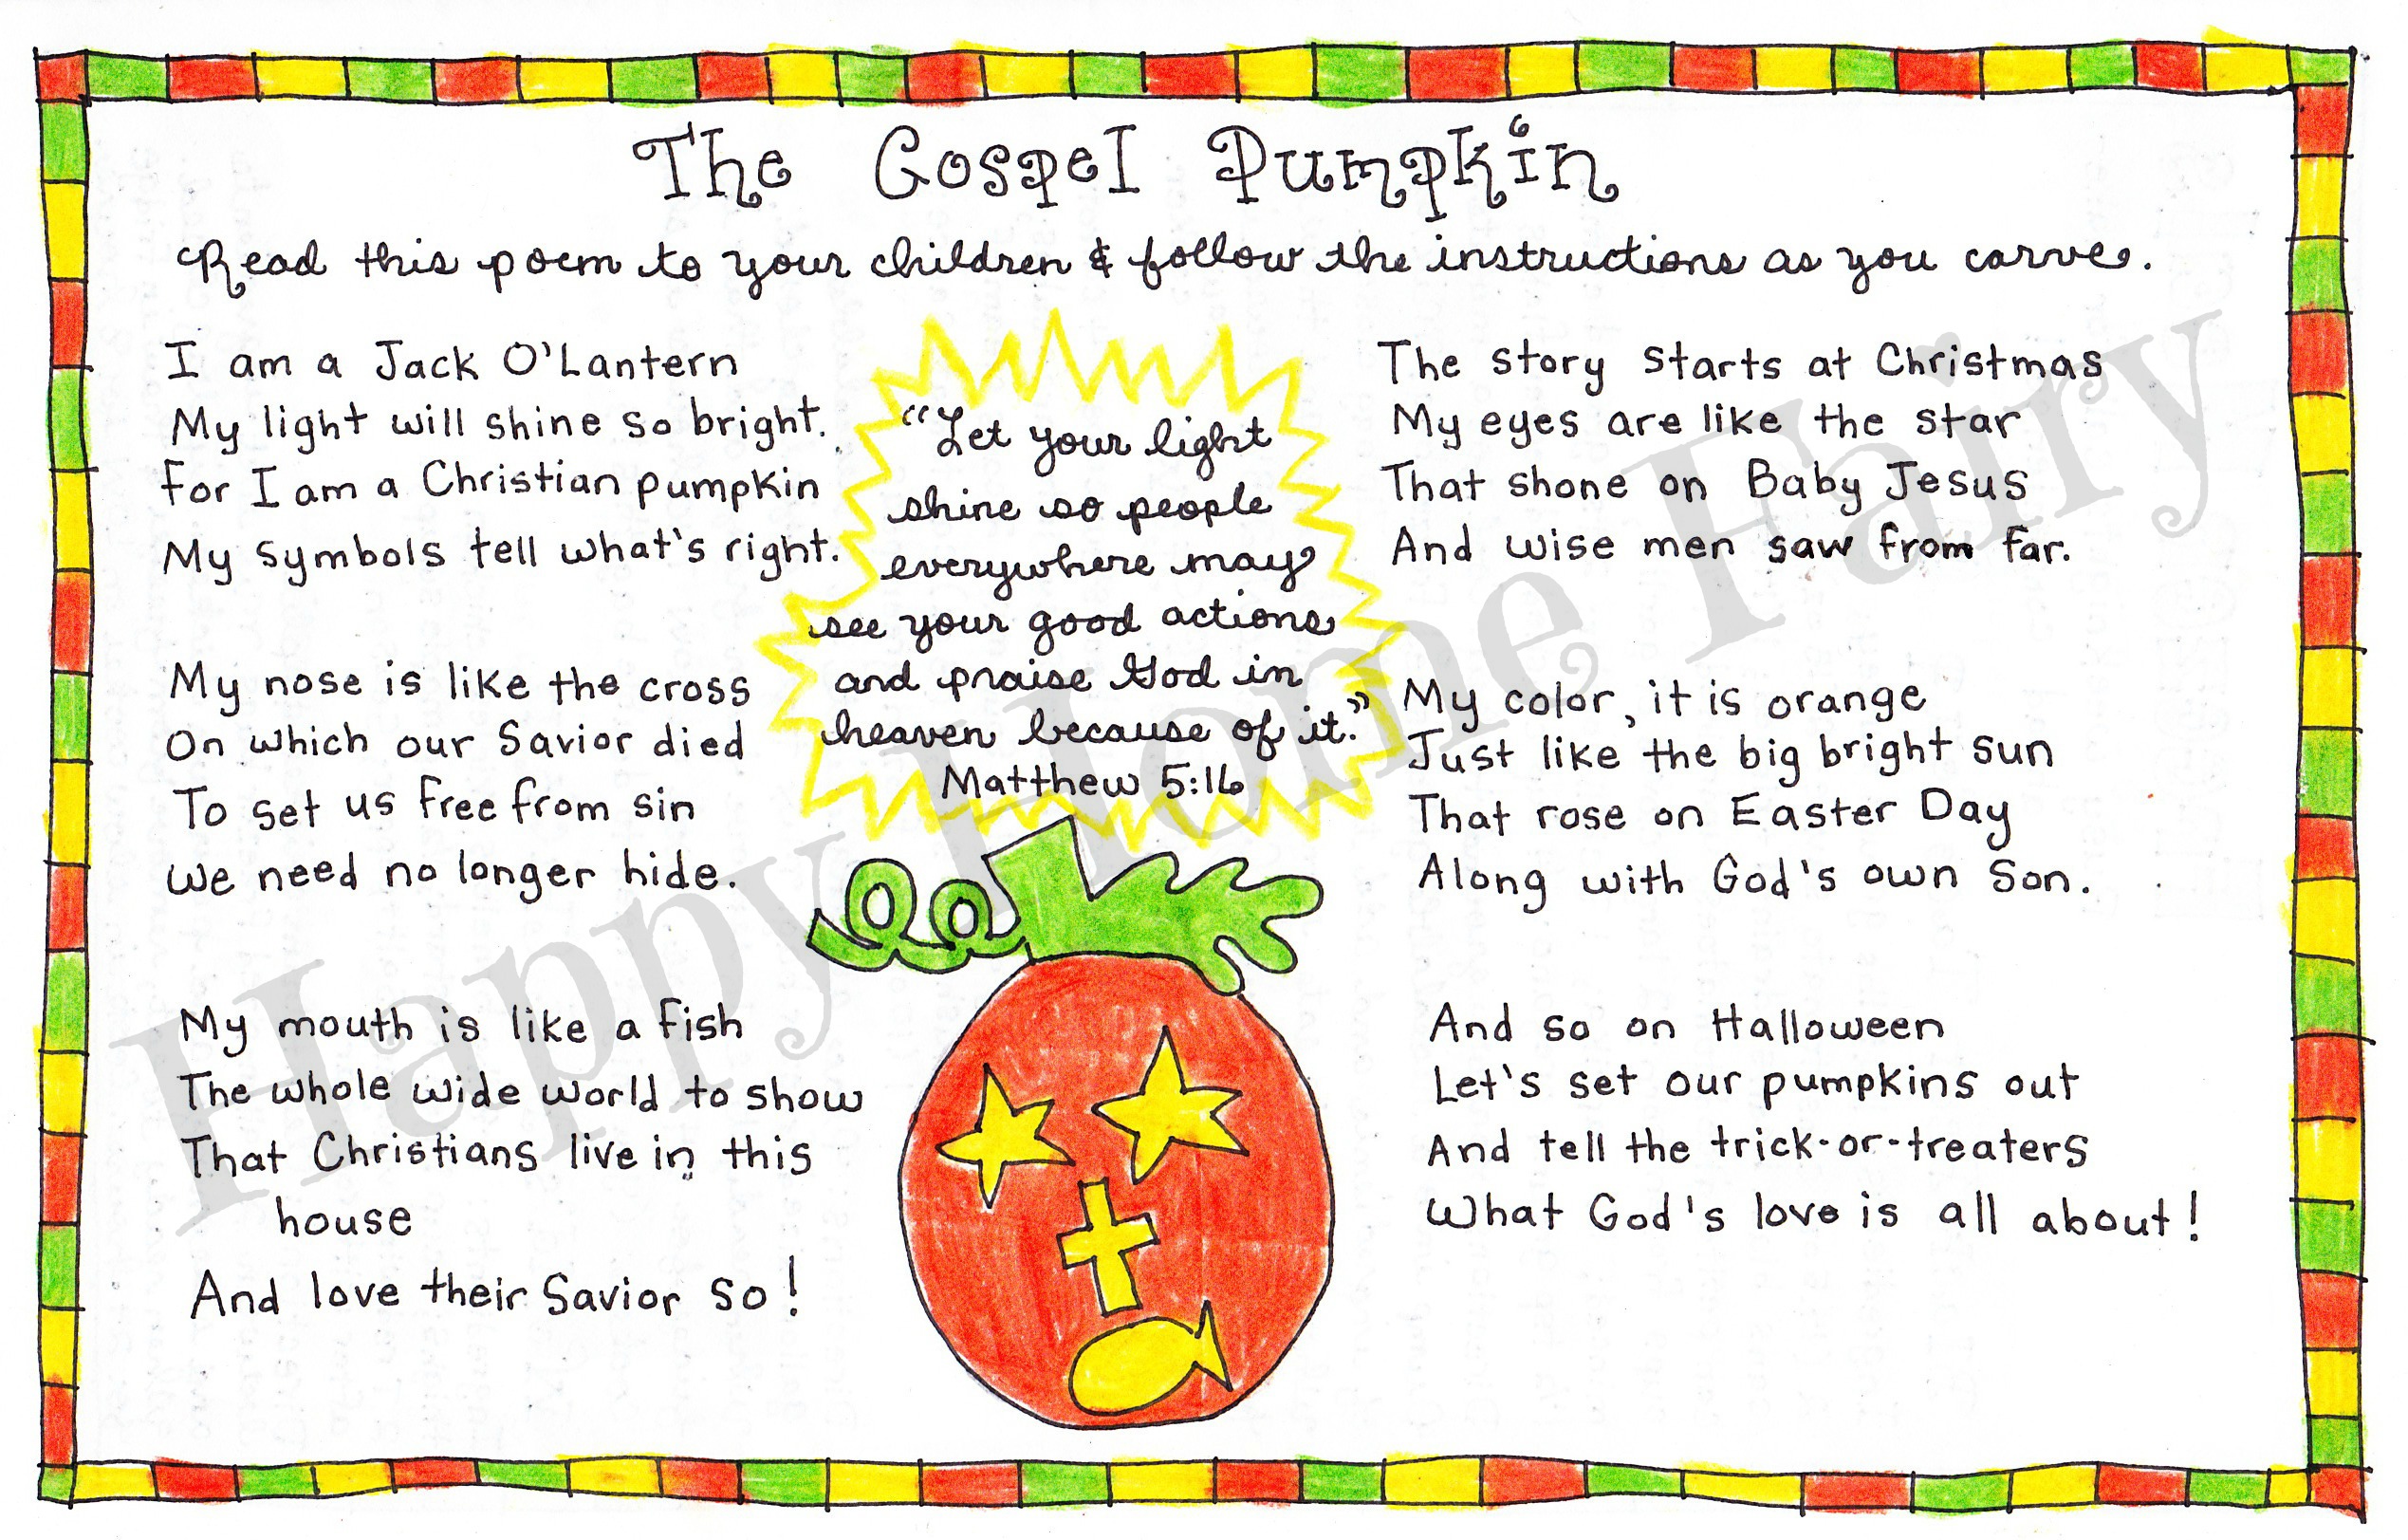 The Gospel Pumpkin
Read this poem to your children & follow the instructions as you carve.
I am a Jack O'Lantern
My light will shine so bright.
For I am a Christian pumpkin
My symbols tell what's right.
My nose is like the cross
On which our Savior died
To set us free from sin
We need no longer hide.
My mouth is like a fish
The whole wide world to show
That Christians live in this
house
And love their Savior so!
"Let your light
shine so people
everywhere may
see your good actions
and praise God in
heaven because of it."
Matthew 5:16
The story starts at Christmas
My eyes are like the star
That shone on Baby Jesus
And wise men saw from far.
My color, it is orange
Just like the big bright sun
That rose on Easter Day
Along with God's own Son.
And so on Halloween
Let's set our pumpkins out
And tell the trick-or-treaters
What God's love is all about!
Happy Home Fairy